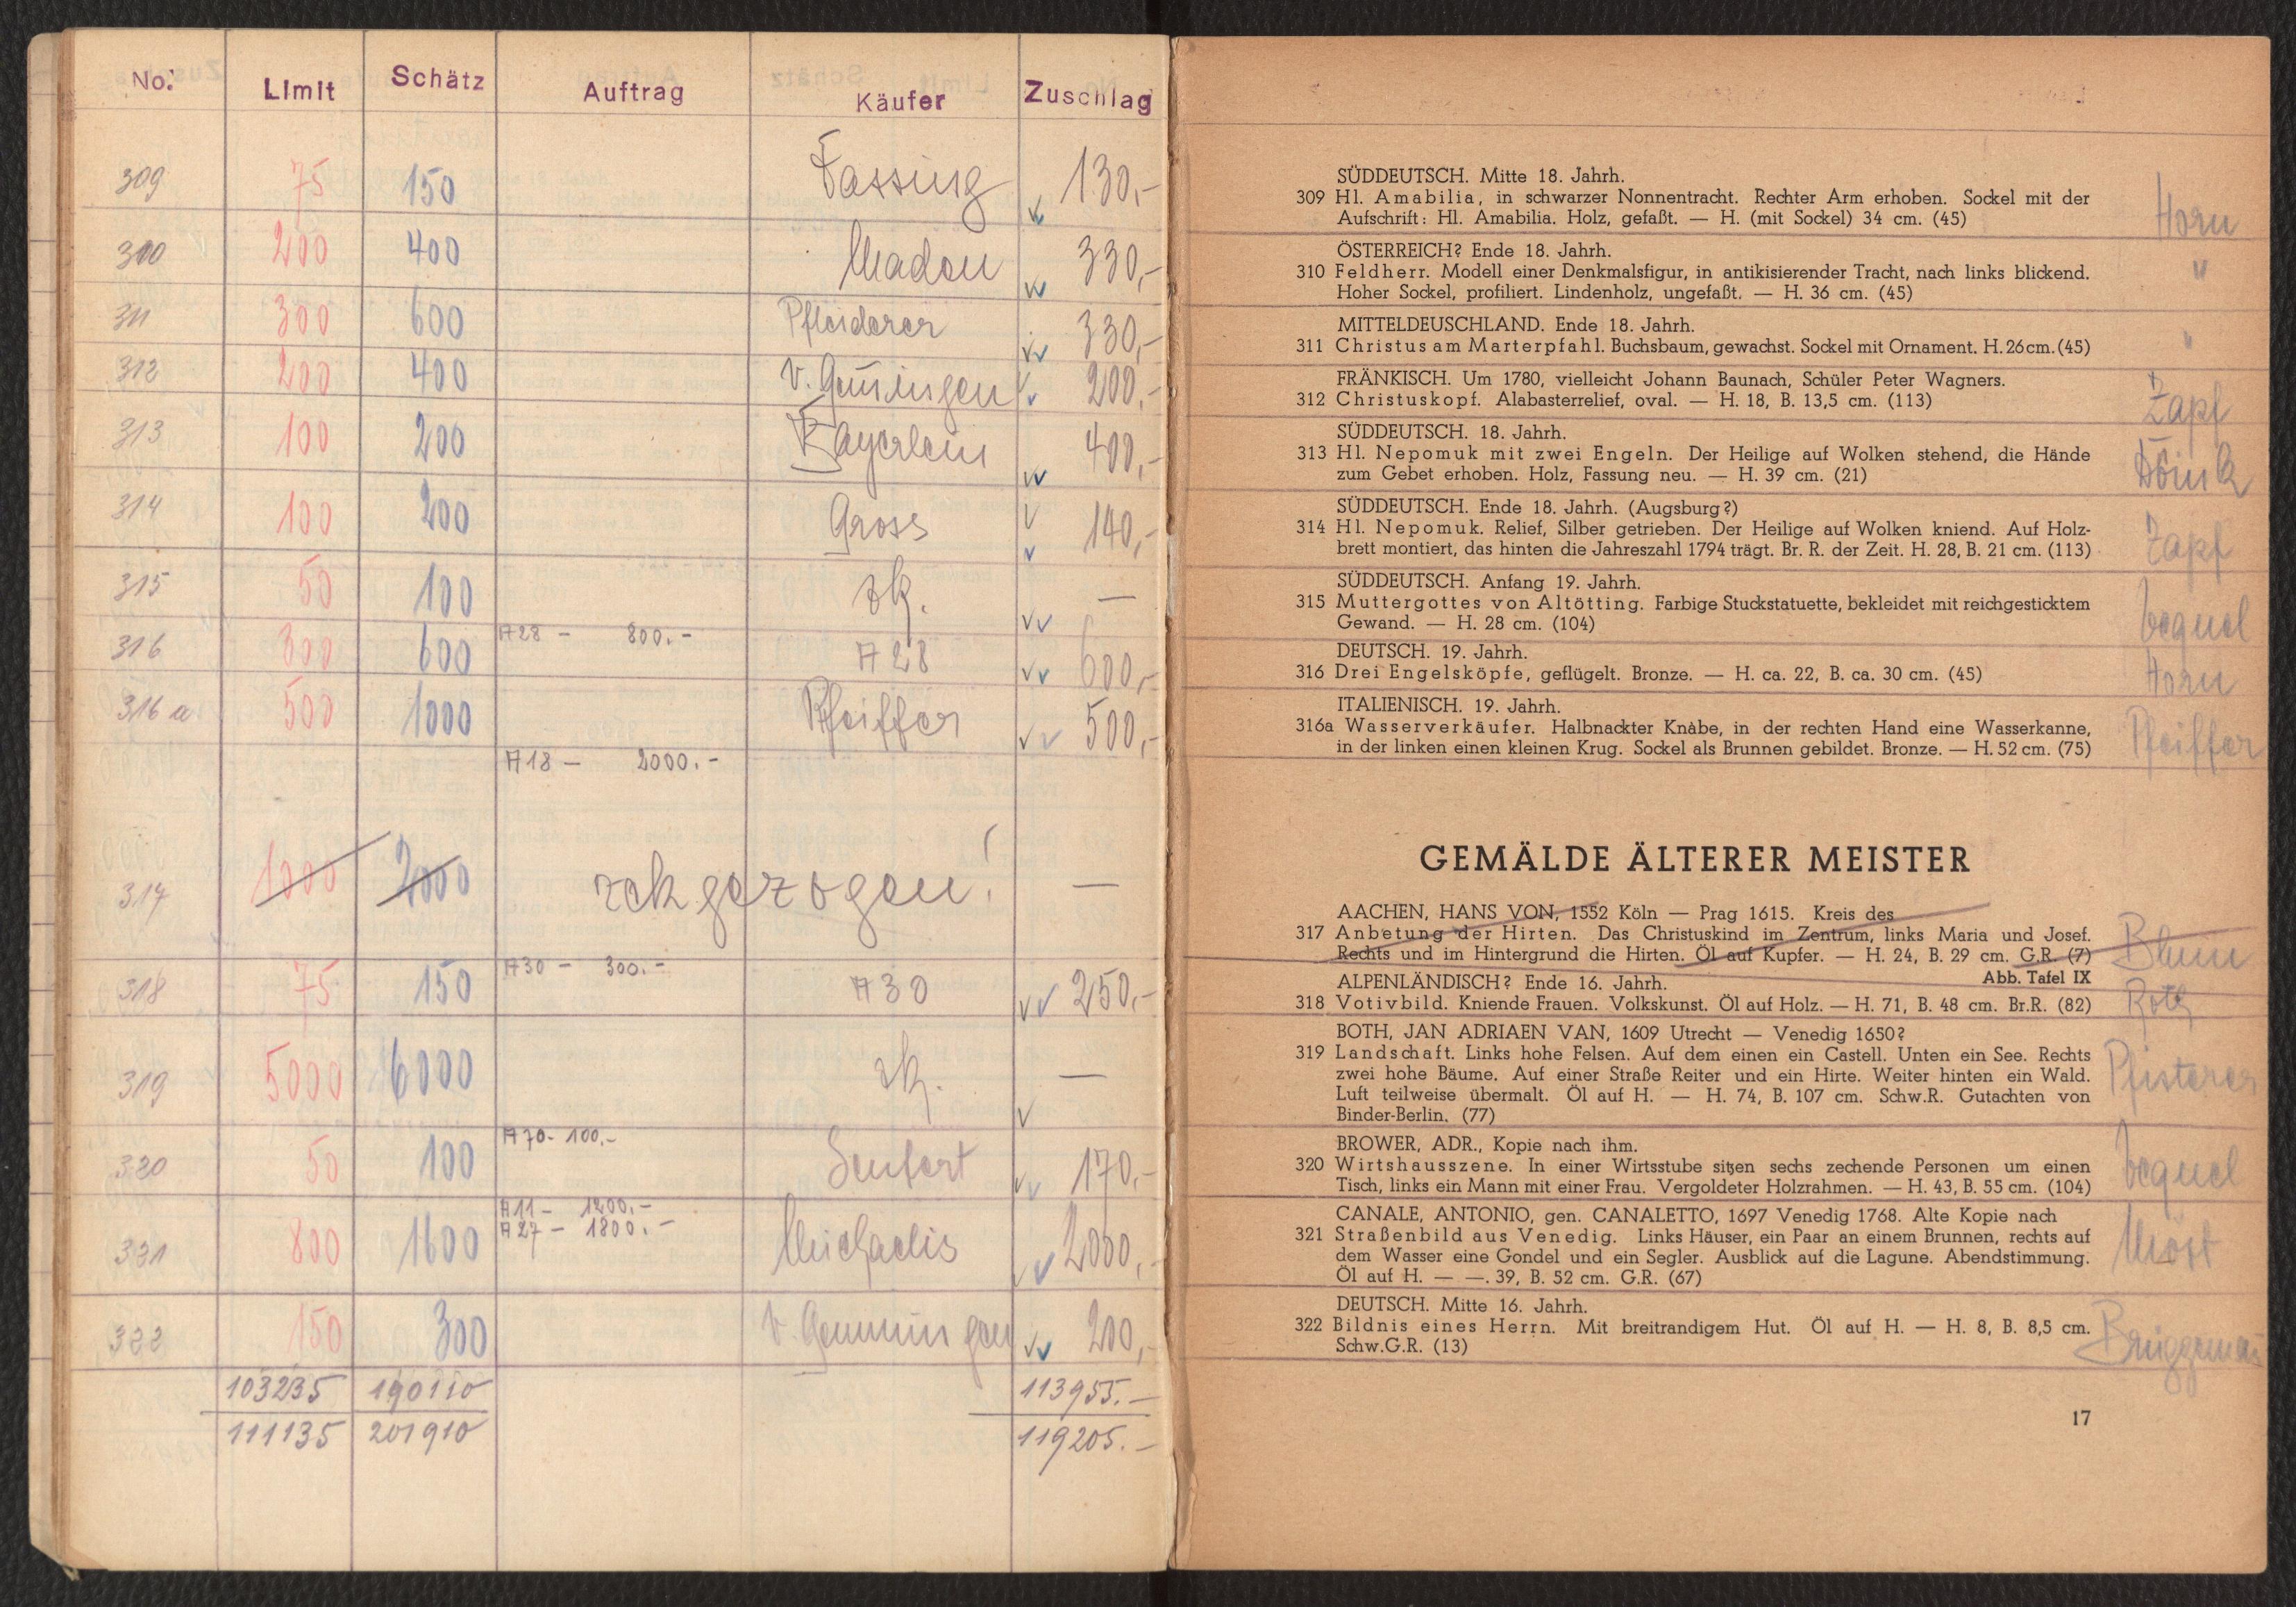 No. Limit Schätz Auftrag Käufer Zuschlag
309 75 150 Fassing 130,-
300 200 400 Madou 330,-
311 300 600 Pfleiderer 330,-
312 200 400 v. Gemmingen 200,-
313 100 200 Bayerlein 400,-
314 100 200 Gross 140,-
315 50 100 zk. —
316 300 600 A28 - 800.- A28 600,-
316 a 500 1000 Pfeiffer 500,-
A18 - 2000.-
317 1000 2000 zckgezogen! —
318 75 150 A30 - 300.- A30 250,-
319 5000 6000 zk. —
320 50 100 A70- 100.- Seufert 170,-
A11 - 1200.-
321 800 1600 A27 - 1800.- Michaelis 2000,-
322 150 300 v. Gemmingen 200,-
103235 190110 113955.-
111135 201910 119205.-
SÜDDEUTSCH. Mitte 18. Jahrh.
309 Hl. Amabilia, in schwarzer Nonnentracht. Rechter Arm erhoben. Sockel mit der
Aufschrift: Hl. Amabilia. Holz, gefaßt. — H. (mit Sockel) 34 cm. (45) Horn
ÖSTERREICH? Ende 18. Jahrh.
310 Feldherr. Modell einer Denkmalsfigur, in antikisierender Tracht, nach links blickend. "
Hoher Sockel, profiliert. Lindenholz, ungefaßt. — H. 36 cm. (45)
MITTELDEUSCHLAND. Ende 18. Jahrh.
311 Christus am Marterpfahl. Buchsbaum, gewachst. Sockel mit Ornament. H. 26 cm. (45) "
FRÄNKISCH. Um 1780, vielleicht Johann Baunach, Schüler Peter Wagners.
312 Christuskopf. Alabasterrelief, oval. — H. 18, B. 13,5 cm. (113) Zapf
SÜDDEUTSCH. 18. Jahrh.
313 Hl. Nepomuk mit zwei Engeln. Der Heilige auf Wolken stehend, die Hände
zum Gebet erhoben. Holz, Fassung neu. — H. 39 cm. (21)
SÜDDEUTSCH. Ende 18. Jahrh. (Augsburg?)
314 Hl. Nepomuk. Relief, Silber getrieben. Der Heilige auf Wolken kniend. Auf Holz-
brett montiert, das hinten die Jahreszahl 1794 trägt. Br. R. der Zeit. H. 28, B. 21 cm. (113) Zapf
SÜDDEUTSCH. Anfang 19. Jahrh.
315 Muttergottes von Altötting. Farbige Stuckstatuette, bekleidet mit reichgesticktem
Gewand. — H. 28 cm. (104)
DEUTSCH. 19. Jahrh.
316 Drei Engelsköpfe, geflügelt. Bronze. — H. ca. 22, B. ca. 30 cm. (45) Horn
ITALIENISCH. 19. Jahrh.
316a Wasserverkäufer. Halbnackter Knabe, in der rechten Hand eine Wasserkanne,
in der linken einen kleinen Krug. Sockel als Brunnen gebildet. Bronze. — H. 52 cm. (75) Pfeiffer
GEMÄLDE ÄLTERER MEISTER
AACHEN, HANS VON, 1552 Köln — Prag 1615. Kreis des
317 Anbetung der Hirten. Das Christuskind im Zentrum, links Maria und Josef.
Rechts und im Hintergrund die Hirten. Öl auf Kupfer. — H. 24, B. 29 cm. G.R. (7) Blum
Abb. Tafel IX
ALPENLÄNDISCH? Ende 16. Jahrh.
318 Votivbild. Kniende Frauen. Volkskunst. Öl auf Holz. — H. 71, B. 48 cm. Br.R. (82) Roth
BOTH, JAN ADRIAEN VAN, 1609 Utrecht — Venedig 1650?
319 Landschaft. Links hohe Felsen. Auf dem einen ein Castell. Unten ein See. Rechts
zwei hohe Bäume. Auf einer Straße Reiter und ein Hirte. Weiter hinten ein Wald. Pfisterer
Luft teilweise übermalt. Öl auf H. — H. 74, B. 107 cm. Schw.R. Gutachten von
Binder-Berlin. (77)
BROWER, ADR., Kopie nach ihm.
320 Wirtshausszene. In einer Wirtsstube sitzen sechs zechende Personen um einen
Tisch, links ein Mann mit einer Frau. Vergoldeter Holzrahmen. — H. 43, B. 55 cm. (104)
CANALE, ANTONIO, gen. CANALETTO, 1697 Venedig 1768. Alte Kopie nach
321 Straßenbild aus Venedig. Links Häuser, ein Paar an einem Brunnen, rechts auf
dem Wasser eine Gondel und ein Segler. Ausblick auf die Lagune. Abendstimmung. Möst
Öl auf H. — —. 39, B. 52 cm. G.R. (67)
DEUTSCH. Mitte 16. Jahrh.
322 Bildnis eines Herrn. Mit breitrandigem Hut. Öl auf H. — H. 8, B. 8,5 cm.
Schw.G.R. (13) Brüggemann
17